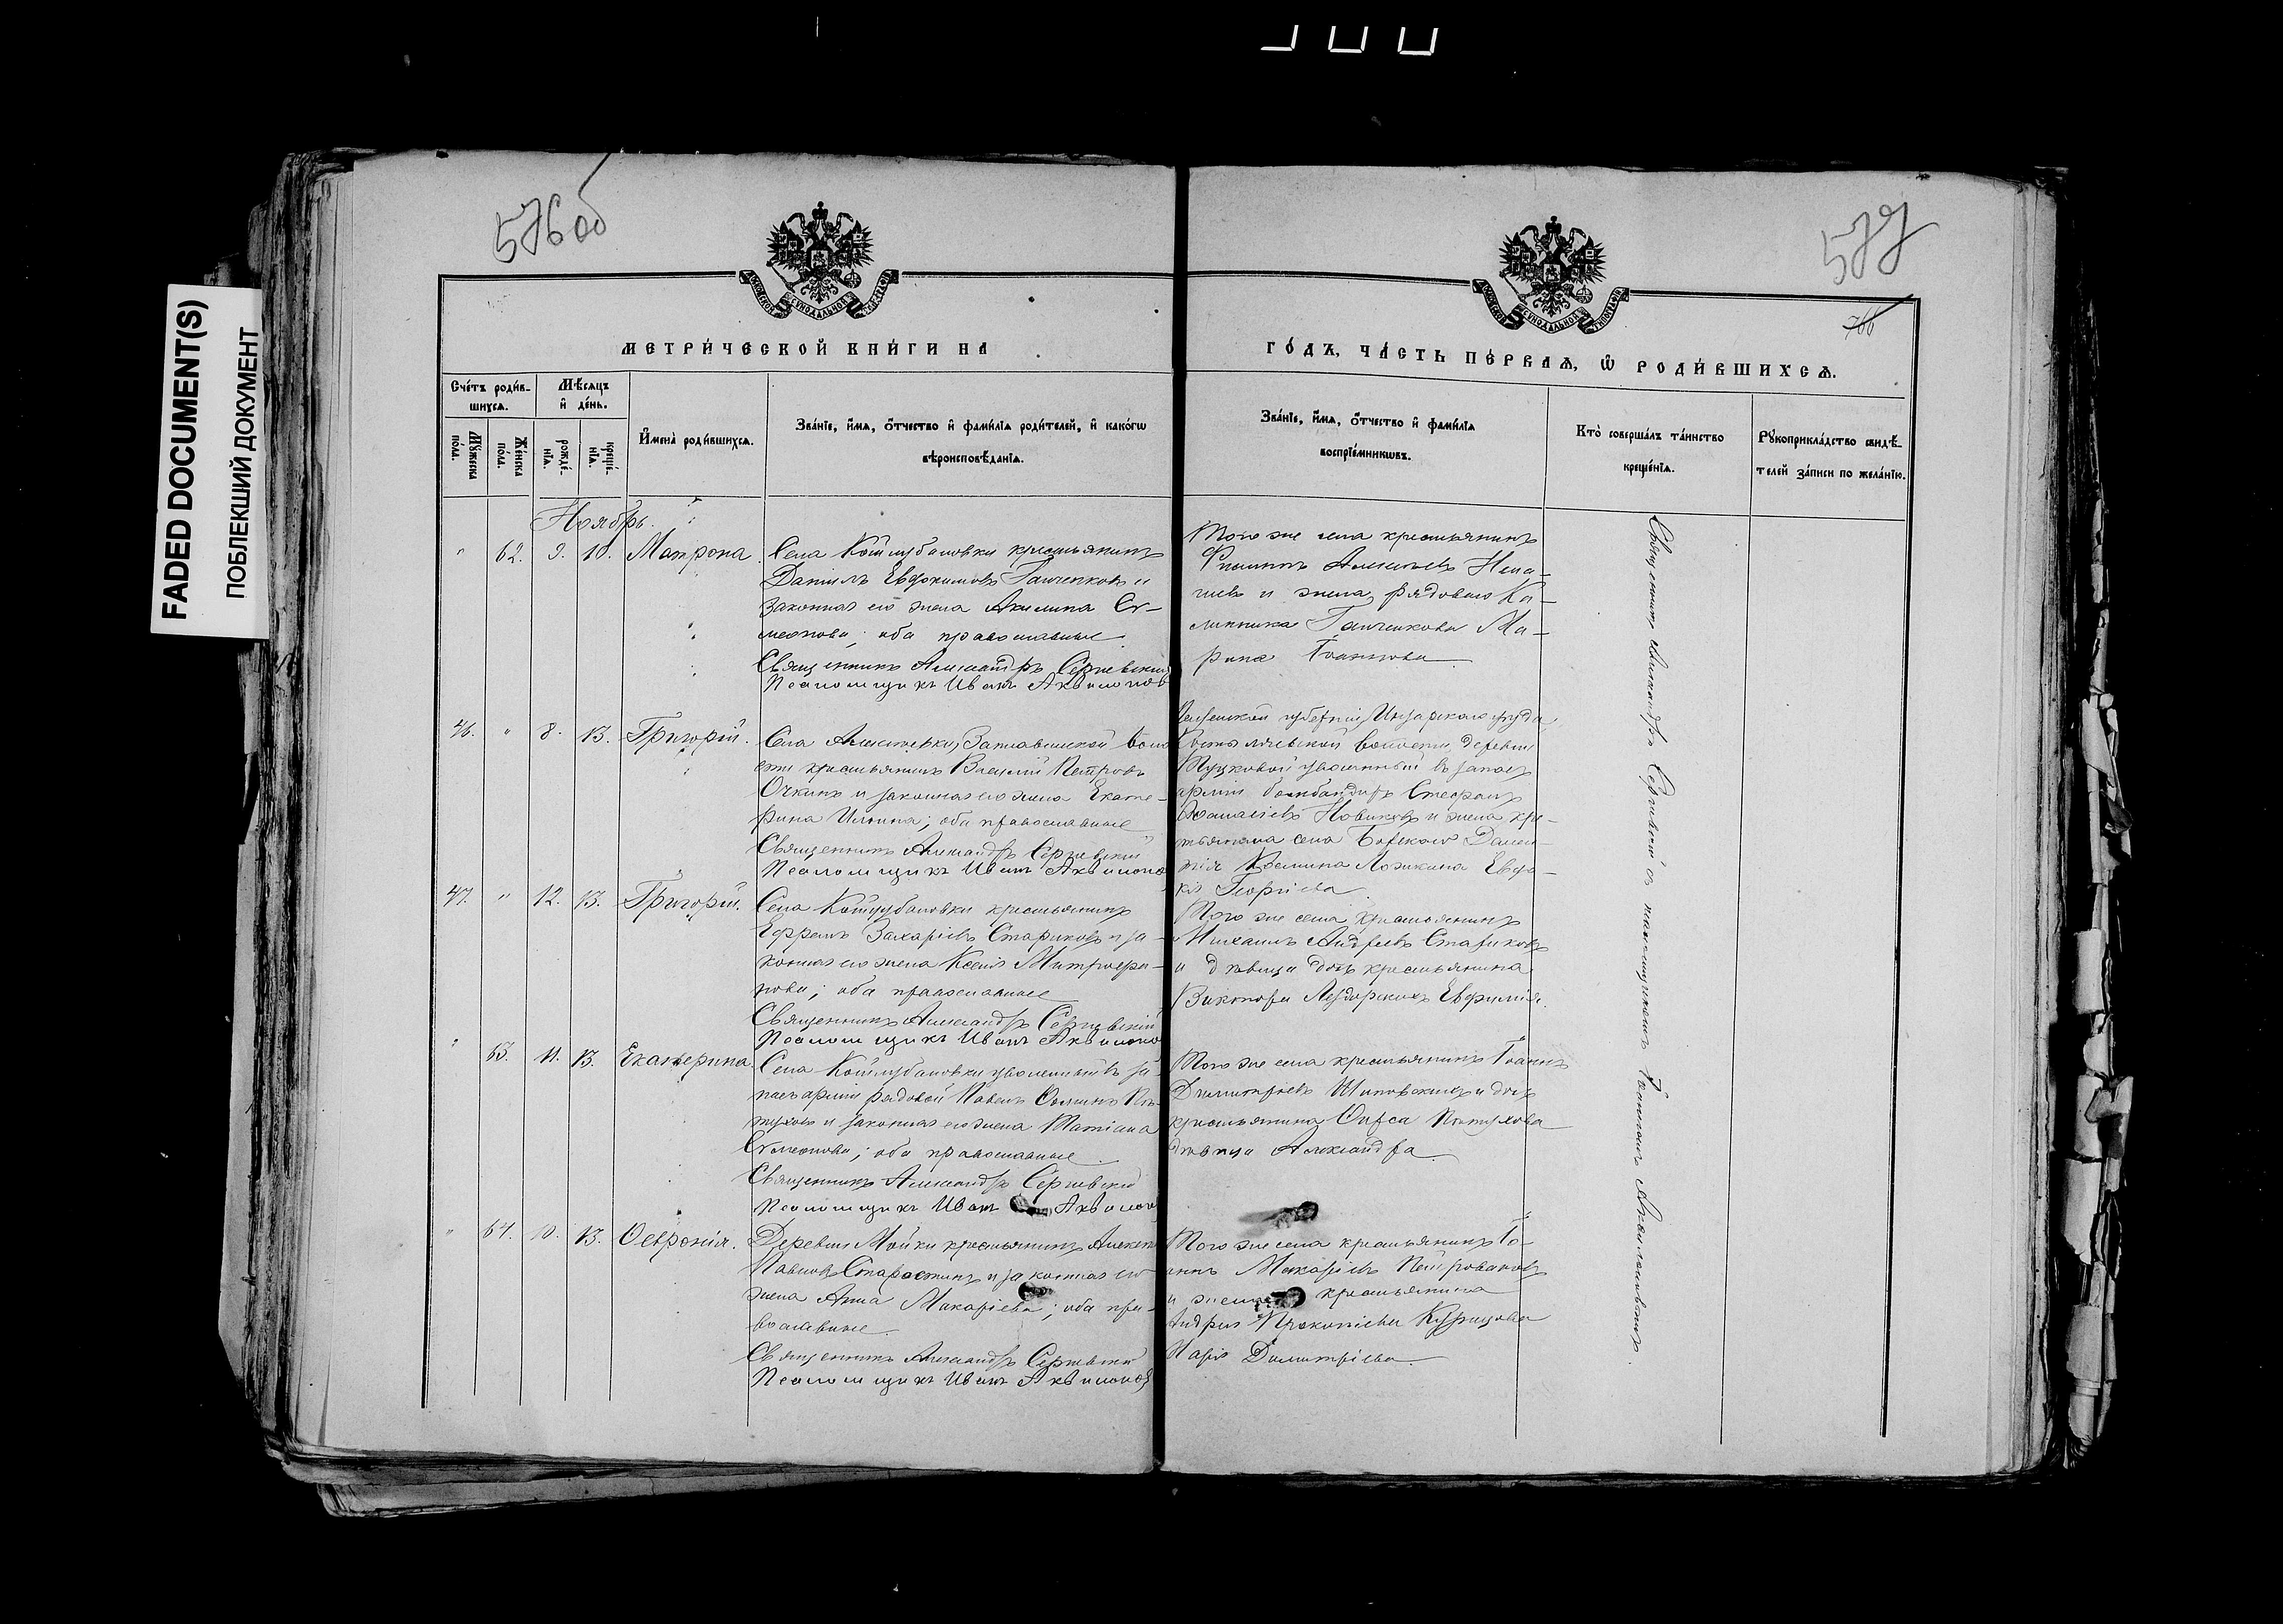 FADED DOCUMENT(S)
ПОБЛЕКШИЙ ДОКУМЕНТ
576 об
577
766
МЕТРИ́ЧЕСКОЙ КНИ́ГИ НА
ГО́ДЪ, ЧА́СТЬ ПЕ́РВАѦ, Ѡ҆ РОДИ́ВШИХСѦ.
Сче́тъ роди́в-
шихсѧ.
Мѣ́сѧцъ
и҆ де́нь.
Мꙋ́жеска
по́ла.
Же́нска
по́ла.
рожде́-
нїѧ.
креще́-
нїѧ.
И҆мена̀ роди́вшихсѧ.
Зва́нїе, и҆́мѧ, ѻ҆́тчество и҆ фами́лїѧ роди́телей, и҆ како́гѡ
вѣроисповѣ́данїѧ.
Зва́нїе, и҆́мѧ, ѻ҆́тчество и҆ фами́лїѧ
воспрїе́мникѡвъ.
Кто̀ соверша́лъ та́инство
креще́нїѧ.
Рꙋкоприкла́дство свидѣ́-
телей за́писи по жела́нїю.
Ноябрь.
" 62. 9. 10. Матрона.
Села Коптубановки крестьянинъ
Даніилъ Евдокимовъ Ганченковъ и
законная его жена Акилина Си-
меонова; оба православные
Священникъ Александръ Сергиевскій
Псаломщикъ Иванъ Аквилоновъ
Того же села крестьянинъ
Филиппъ Алексѣевъ
и жена рядового Ка-
линника Ганченкова Ма-
рина Іоаннова
46. " 8. 13. Григорій.
Села Алексѣевки, Заплавинской воло
сти крестьянинъ Василій Петровъ
Очкинъ и законная его жена Екате-
рина Ильина; оба православные
Священникъ Александръ Сергиевскій
Псаломщикъ Иванъ Аквилонов
Пензенской губерніи, Инсарского уѣзда,
волости, деревни
уволенный въ запасъ
арміи бомбандиръ Стефанъ
Афанасіевъ Новиковъ и жена кре-
стьянина села Борского
Ложкина Евдо-
кія Георгіева.
47. " 12. 13. Григорій.
Села Коптубановки крестьянинъ
Ефремъ Захаріевъ Стариковъ и за-
конная его жена Ксенія Митрофа-
нова; оба православные
Священникъ Александръ Сергиевскій
Псаломщикъ Иванъ Аквилоно
Того же села крестьянинъ
Михаилъ Андреевъ Стариковъ
и дѣвица дочь крестьянина
Виктора Евфимія.
" 63. 11. 13. Екатерина.
Села Коптубановки уволенный въ за-
пасъ арміи рядовой Павелъ Пѣ-
туховъ и законная его жена Татіана
Симеонова; оба православные
Священникъ Александръ Сергиевскій
Псаломщикъ Иванъ Аквилонов
Того же села крестьянинъ Іоаннъ
Димитріевъ Шиповскихъ и дочь
крестьянина Пѣтухова
дѣвица Александра
" 64. 10. 13. Ѳевронія.
Деревни Мойки крестьянинъ
Павловъ Старостинъ и законная его
жена Анна Макаріева; оба пра-
вославные.
Священникъ Александръ Сергиевскій
Псаломщикъ Иванъ Аквилонов
Того же села крестьянинъ Іо-
аннъ Макаріевъ
и жена крестьянина
Андрея Прокопіева
Марія Димитріева
Священникъ Александръ Сергиевскій съ псаломщикомъ Іоанномъ Аквилоновымъ.